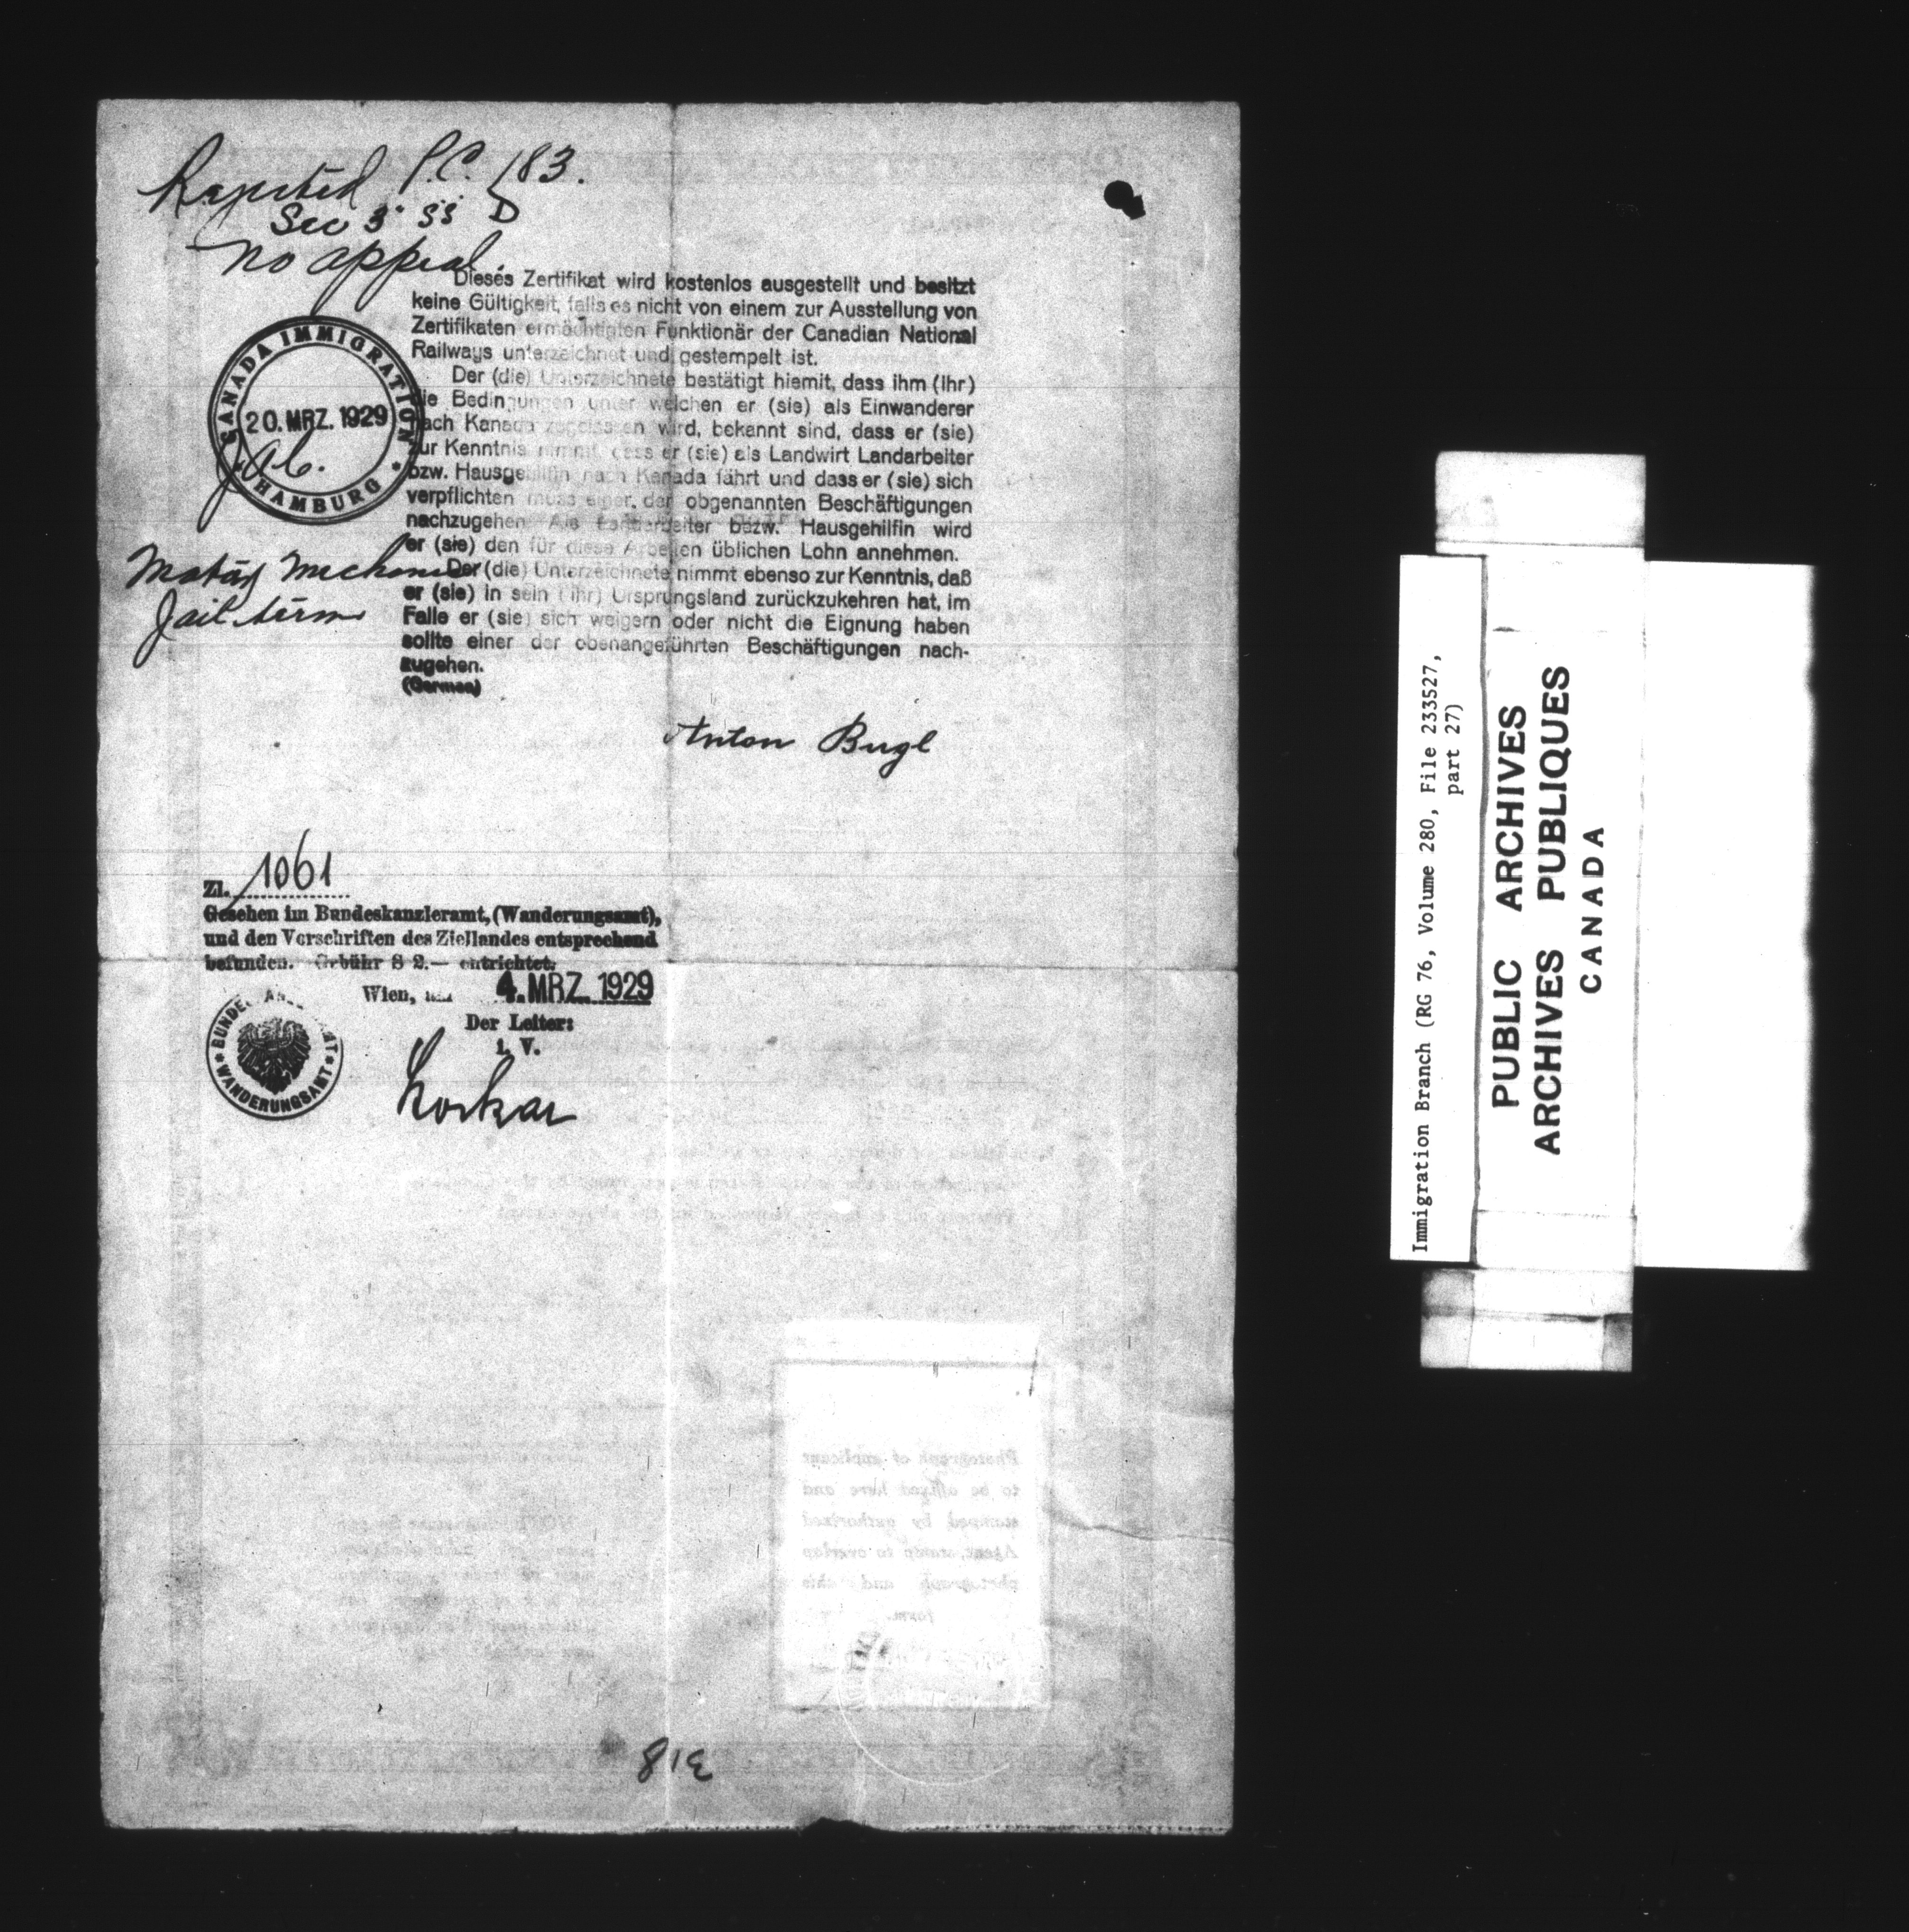 Rejected P.C. 183.
Sec 3 ss D
no appeal.
Dieses Zertifikat wird kostenlos ausgestellt und besitzt
keine Gültigkeit, falls es nicht von einem zur Ausstellung von
Zertifikaten ermächtigten Funktionär der Canadian National
Railways unterzeichnet und gestempelt ist.
Der (die) Unterzeichnete bestätigt hiemit, dass ihm (ihr)
die Bedingungen unter welchen er (sie) als Einwanderer
nach Kanada zugelassen wird, bekannt sind, dass er (sie)
zur Kenntnis nimmt, dass er (sie) als Landwirt Landarbeiter
bzw. Hausgehilfin nach Kanada fährt und dass er (sie) sich
verpflichten muss einer der obgenannten Beschäftigungen
nachzugehen. Als Landarbeiter bezw. Hausgehilfin wird
er (sie) den für diese Arbeiten üblichen Lohn annehmen.
Der (die) Unterzeichnete nimmt ebenso zur Kenntnis, daß
er (sie) in sein (ihr) Ursprungsland zurückzukehren hat, im
Falle er (sie) sich weigern oder nicht die Eignung haben
sollte einer der obenangeführten Beschäftigungen nach-
zugehen.
(German)
CANADA IMMIGRATION
20. MRZ. 1929
HAMBURG
Motor Mechanic
Jail term
Anton Bugl
Zl. 1061
Gesehen im Bundeskanzleramt, (Wanderungsamt),
und den Vorschriften des Ziellandes entsprechend
befunden. Gebühr S 2.— entrichtet.
Wien, am 4. MRZ. 1929
Der Leiter:
i. V.
WANDERUNGSAMT
Photograph of applicant
to be affixed here and
stamped by authorized
Agent, stamp to overlap
photograph and this
form.
318
Immigration Branch (RG 76, Volume 280, File 233527,
part 27)
PUBLIC ARCHIVES
ARCHIVES PUBLIQUES
CANADA